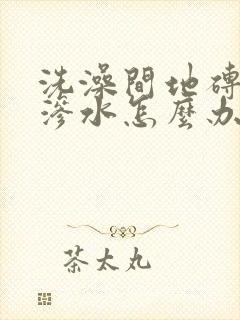 洗澡間地磚
滲水怎麼办
茶太丸